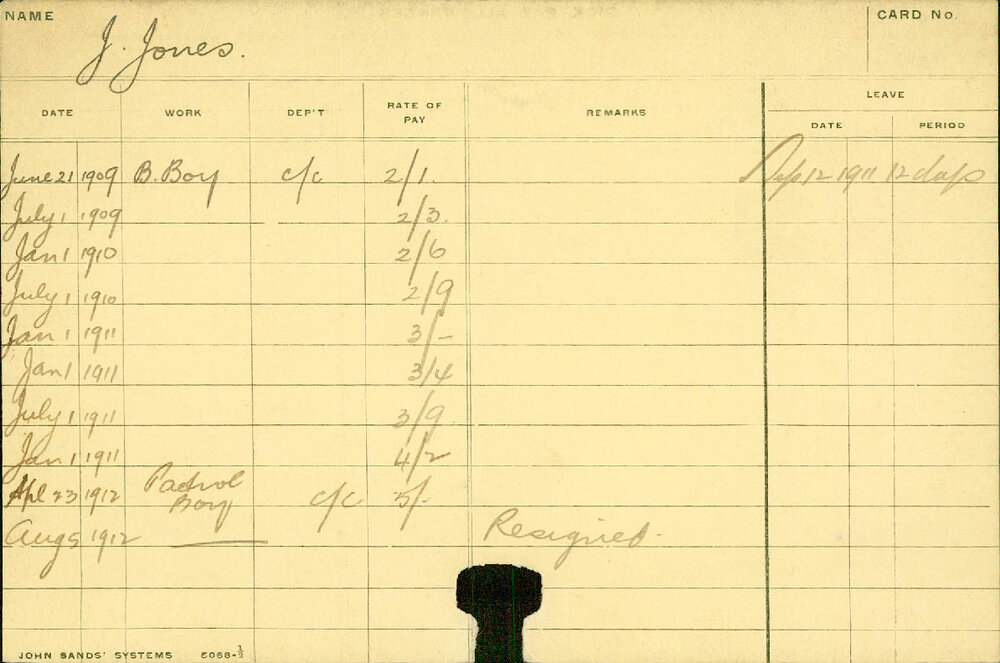 NAME J. Jones. CARD No.
LEAVE
DATE WORK DEP'T RATE OF PAY REMARKS DATE PERIOD
June 21 1909 B. Boy c/c 2/1 Sep 12 1911 12 days
July 1 1909 2/3
Jan 1 1910 2/6
July 1 1910 2/9
Jan 1 1911 3/-
Jan 1 1911 3/4
July 1 1911 3/9
Jan 1 1911 4/2
Apl 23 1912 Patrol Boy c/c 5/-
Aug 9 1912 Resigned.
JOHN SANDS' SYSTEMS 6068-½